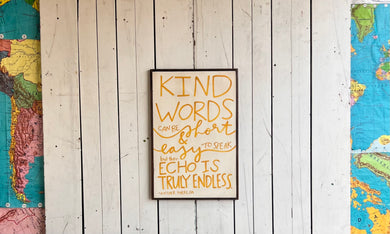 KIND
WORDS
CAN BE short
&
easy TO SPEAK,
but their
ECHO IS
TRULY ENDLESS.